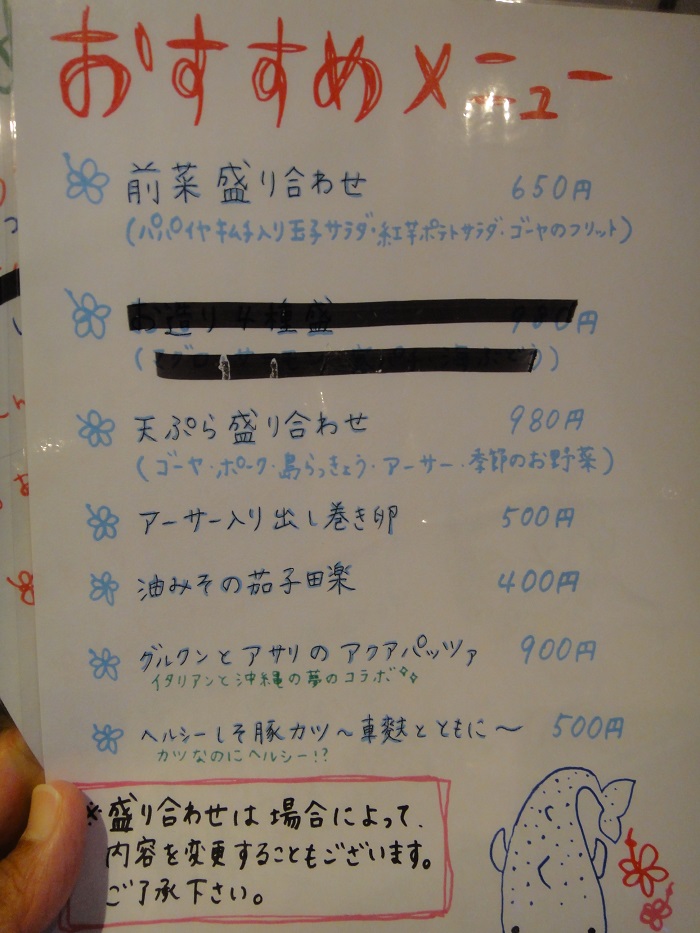 おすすめメニュー
前菜盛り合わせ 650円
(パパイヤキムチ入り玉子サラダ・紅芋ポテトサラダ・ゴーヤのフリット)
お造り4種盛 980円
天ぷら盛り合わせ 980円
(ゴーヤ・ポーク・島らっきょう・アーサー・季節のお野菜)
アーサー入り出し巻き卵 500円
油みその茄子田楽 400円
グルクンとアサリのアクアパッツァ 900円
イタリアンと沖縄の夢のコラボ
ヘルシーしそ豚カツ～車麩とともに～ 500円
カツなのにヘルシー!?
※盛り合わせは場合によって、
内容を変更することもございます。
ご了承下さい。